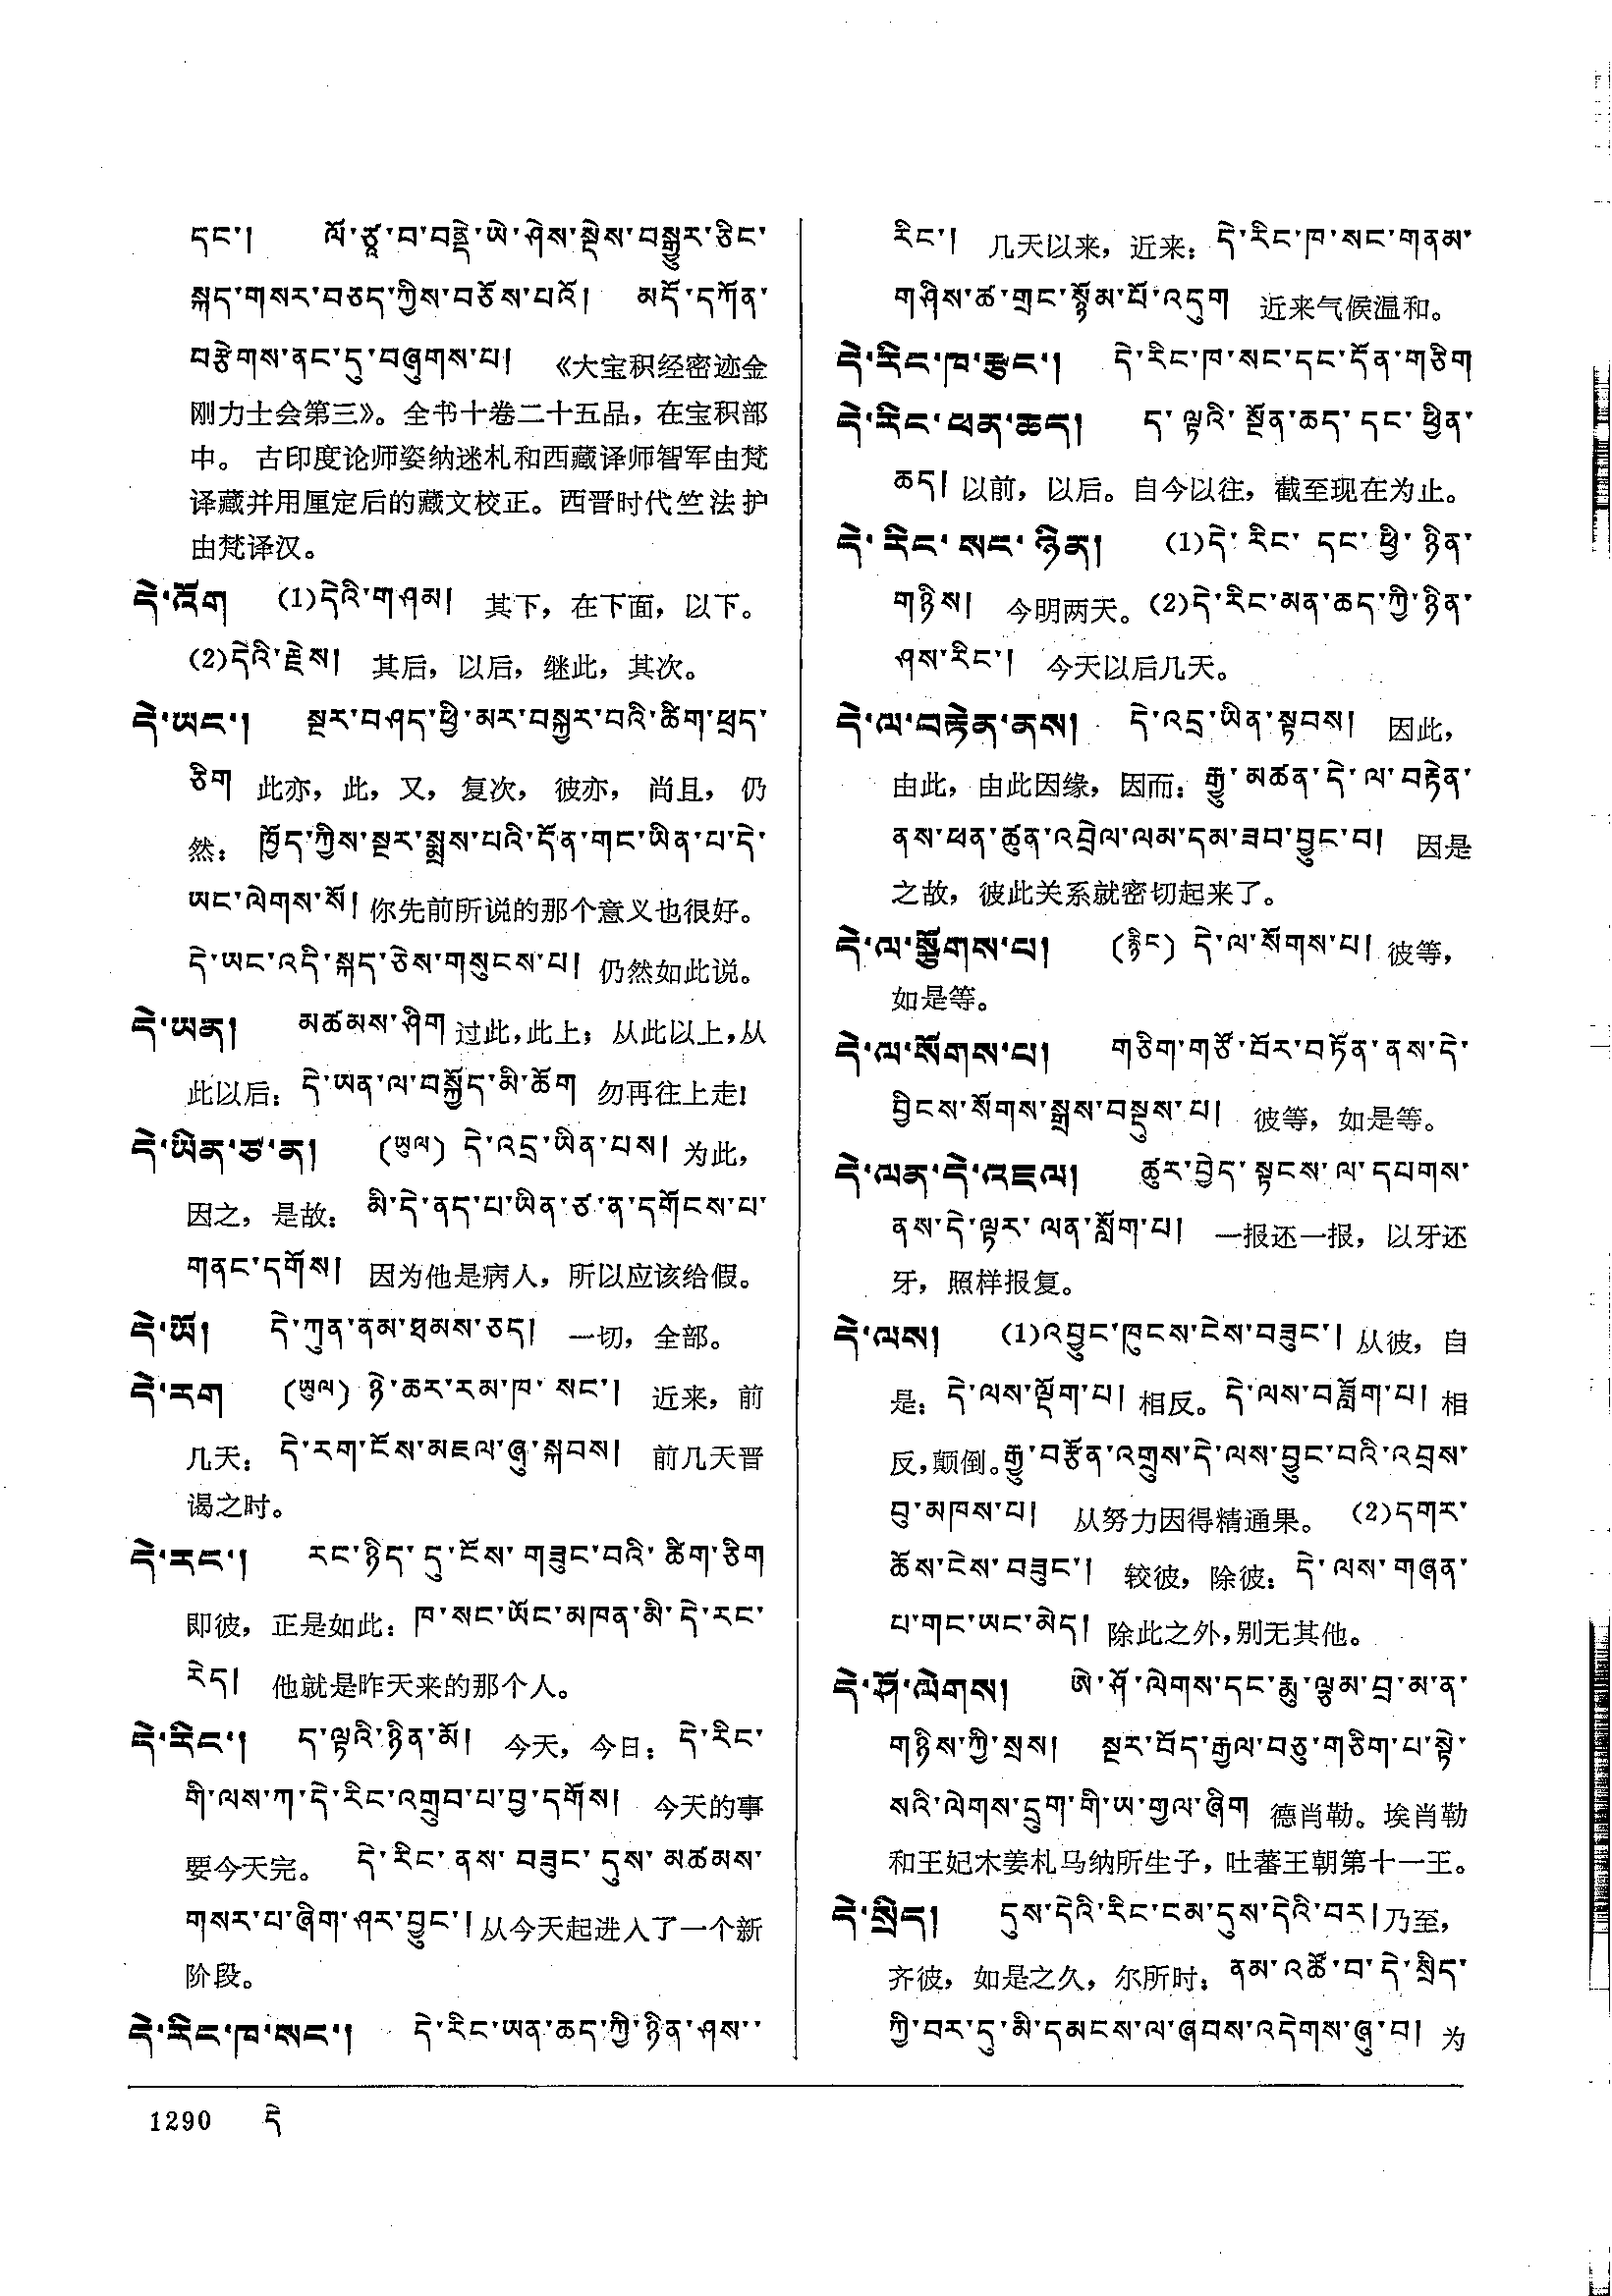 དང་། ལོ་ཙཱ་བ་བནྡེ་ཡེ་ཤེས་སྡེས་བསྒྱུར་ཅིང་
སྐད་གསར་བཅད་ཀྱིས་བཅོས་པའོ། མདོ་དཀོན་
བརྩེགས་ནང་དུ་བཞུགས་པ། 《大宝积经密迹金
刚力士会第三》。全书十卷二十五品，在宝积部
中。 古印度论师姿纳迷札和西藏译师智军由梵
译藏并用厘定后的藏文校正。西晋时代竺法护
由梵译汉。
དེ་འོག (1)དེའི་གཤམ། 其下，在下面，以下。
(2)དེའི་རྗེས། 其后，以后，继此，其次。
དེ་ཡང་། སྔར་བཤད་ཕྱི་མར་བསྐྱར་བའི་ཚིག་ཕྲད་
ཅིག 此亦，此，又，复次，彼亦，尚且，仍
然： ཁྱོད་ཀྱིས་སྔར་སྨྲས་པའི་དོན་གང་ཡིན་པ་དེ་
ཡང་ལེགས་སོ། 你先前所说的那个意义也很好。
དེ་ཡང་འདི་སྐད་ཅེས་གསུངས་པ། 仍然如此说。
དེ་ཡན། མཚམས་ཤིག 过此，此上；从此以上，从
此以后：དེ་ཡན་ལ་བསྐྱོད་མི་ཆོག 勿再往上走！
དེ་ཡིན་ཙ་ན། (ཡུལ) དེ་འདྲ་ཡིན་པས། 为此，
因之，是故：མི་དེ་ནད་པ་ཡིན་ཙ་ན་དགོངས་པ་
གནང་དགོས། 因为他是病人，所以应该给假。
དེ་ཡོ། དེ་ཀུན་ནམ་ཐམས་ཅད། 一切，全部。
དེ་རག (ཡུལ) ཉེ་ཆར་རམ་ཁ་སང་། 近来，前
几天：དེ་རག་ངོས་མཇལ་ཞུ་སྐབས། 前几天晋
谒之时。
དེ་རང་། རང་ཉིད་དུ་ངོས་གཟུང་བའི་ཚིག་ཅིག
即彼，正是如此：ཁ་སང་ཡོང་མཁན་མི་དེ་རང་
རེད། 他就是昨天来的那个人。
དེ་རིང་། ད་ལྟའི་ཉིན་མོ། 今天，今日：དེ་རིང་
གི་ལས་ཀ་དེ་རིང་འགྲུབ་པ་བྱ་དགོས། 今天的事
要今天完。 དེ་རིང་ནས་བཟུང་དུས་མཚམས་
གསར་པ་ཞིག་ཤར་བྱུང་། 从今天起进入了一个新
阶段。
དེ་རིང་ཁ་སང་། དེ་རིང་ཡན་ཆད་ཀྱི་ཉིན་ཤས་་
རིང་། 几天以来，近来：དེ་རིང་ཁ་སང་གནམ་
གཤིས་ཚ་གྲང་སྙོམ་པོ་འདུག 近来气候温和。
དེ་རིང་ཁ་རྩང་། དེ་རིང་ཁ་སང་དང་དོན་གཅིག
དེ་རིང་ཕན་ཆད། ད་ལྟའི་སྔོན་ཆད་དང་ཕྱིན་
ཆད། 以前，以后。自今以往，截至现在为止。
དེ་རིང་སང་ཉིན། (1)དེ་རིང་དང་ཕྱི་ཉིན་
གཉིས། 今明两天。(2)དེ་རིང་མན་ཆད་ཀྱི་ཉིན་
ཤས་རིང་། 今天以后几天。
དེ་ལ་བརྟེན་ནས། དེ་འདྲ་ཡིན་སྟབས། 因此，
由此，由此因缘，因而：རྒྱུ་མཚན་དེ་ལ་བརྟེན་
ནས་ཕན་ཚུན་འབྲེལ་ལམ་དམ་ཟབ་བྱུང་བ། 因是
之故，彼此关系就密切起来了。
དེ་ལ་སྩོགས་པ། (རྙིང) དེ་ལ་སོགས་པ། 彼等，
如是等。
དེ་ལ་སོགས་པ། གཅིག་གཙོ་བོར་བཏོན་ནས་དེ་
བྱིངས་སོགས་སྒྲས་བསྡུས་པ། 彼等，如是等。
དེ་ལན་དེ་འཇལ། ཚུར་བྱེད་སྟངས་ལ་དཔགས་
ནས་དེ་ལྟར་ལན་སློག་པ། 一报还一报，以牙还
牙，照样报复。
དེ་ལས། (1)འབྱུང་ཁུངས་ངེས་བཟུང་། 从彼，自
是：དེ་ལས་ལྡོག་པ། 相反。དེ་ལས་བཟློག་པ། 相
反，颠倒。རྒྱུ་བརྩོན་འགྲུས་དེ་ལས་བྱུང་བའི་འབྲས་
བུ་མཁས་པ། 从努力因得精通果。 (2)དགར་
ཆོས་ངེས་བཟུང་། 较彼，除彼：དེ་ལས་གཞན་
པ་གང་ཡང་མེད། 除此之外，别无其他。
དེ་ཤོ་ལེགས། ཨེ་ཤོ་ལེགས་དང་རྨུ་ལྕམ་བྲ་མ་ན་
གཉིས་ཀྱི་སྲས། སྔར་བོད་རྒྱལ་བཅུ་གཅིག་པ་སྟེ་
སའི་ལེགས་དྲུག་གི་ཡ་གྱལ་ཞིག 德肖勒。埃肖勒
和王妃木姜札马纳所生子，吐蕃王朝第十一王。
དེ་སྲིད། དུས་དེའི་རིང་ངམ་དུས་དེའི་བར། 乃至，
齐彼，如是之久，尔所时：ནམ་འཚོ་བ་དེ་སྲིད་
ཀྱི་བར་དུ་མི་དམངས་ལ་ཞབས་འདེགས་ཞུ་བ། 为
1290 དེ